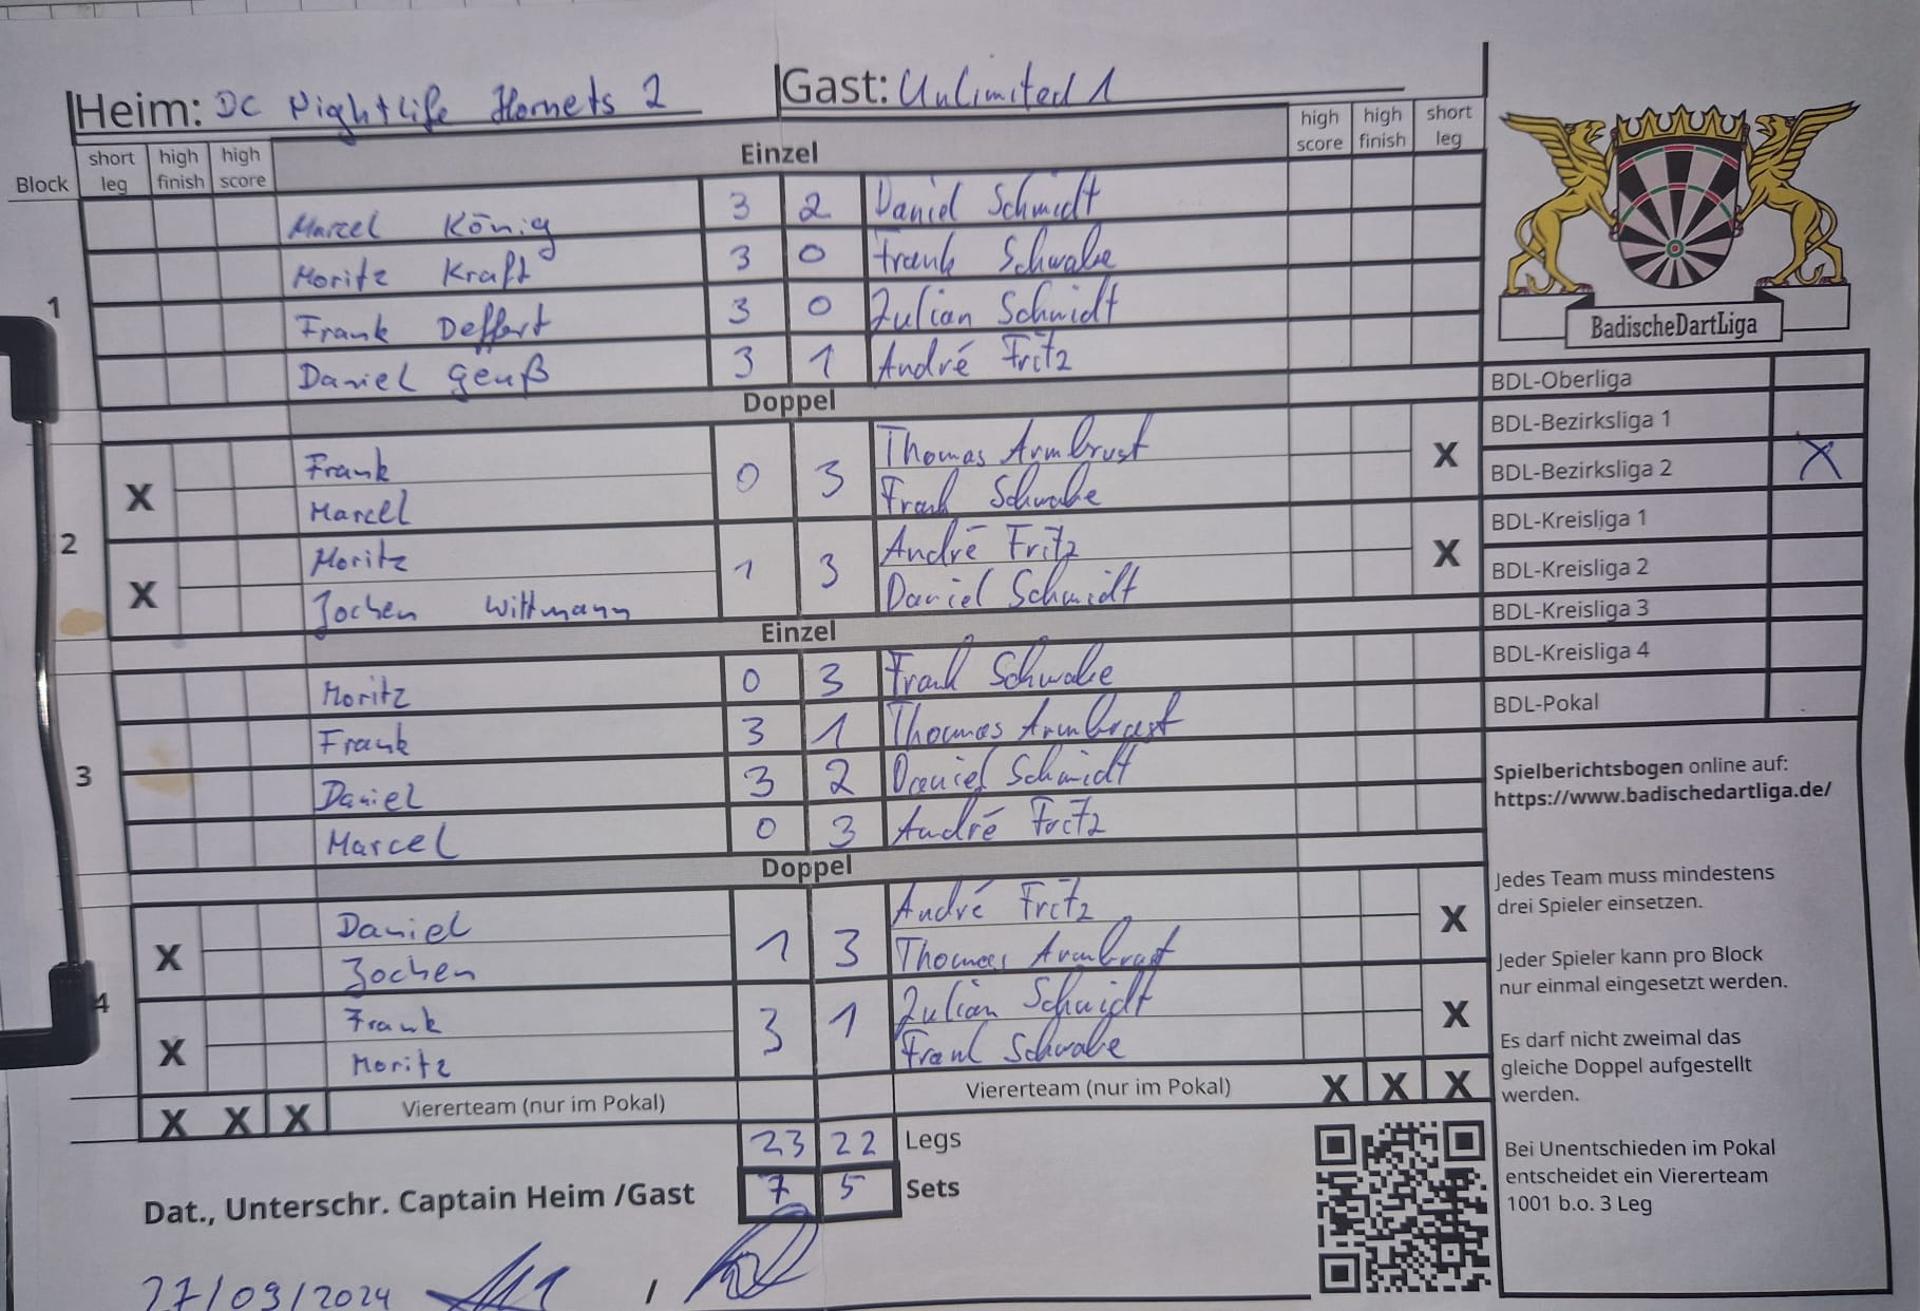 Heim: DC Nightlife Hornets 2 Gast: Unlimited 1
Block short leg high finish high score Einzel high score high finish short leg
1
Marcel König 3 2 Daniel Schmidt
Moritz Kraft 3 0 Frank Schwabe
Frank Deffert 3 0 Julian Schmidt
Daniel Geuß 3 1 André Fritz
Doppel
2
X Frank 0 3 Thomas Armbrust X
Marcel Frank Schwabe
X Moritz 1 3 André Fritz X
Jochen Wittmann Daniel Schmidt
Einzel
3
Moritz 0 3 Frank Schwabe
Frank 3 1 Thomas Armbrust
Daniel 3 2 Daniel Schmidt
Marcel 0 3 André Fritz
Doppel
4
X Daniel 1 3 André Fritz X
Jochen Thomas Armbrust
X Frank 3 1 Julian Schmidt X
Moritz Frank Schwabe
X X X Viererteam (nur im Pokal) Viererteam (nur im Pokal) X X X
23 22 Legs
Dat., Unterschr. Captain Heim /Gast 7 5 Sets
27/09/2024 /
BadischeDartLiga
BDL-Oberliga
BDL-Bezirksliga 1
BDL-Bezirksliga 2 X
BDL-Kreisliga 1
BDL-Kreisliga 2
BDL-Kreisliga 3
BDL-Kreisliga 4
BDL-Pokal
Spielberichtsbogen online auf:
https://www.badischedartliga.de/
Jedes Team muss mindestens
drei Spieler einsetzen.
Jeder Spieler kann pro Block
nur einmal eingesetzt werden.
Es darf nicht zweimal das
gleiche Doppel aufgestellt
werden.
Bei Unentschieden im Pokal
entscheidet ein Viererteam
1001 b.o. 3 Leg